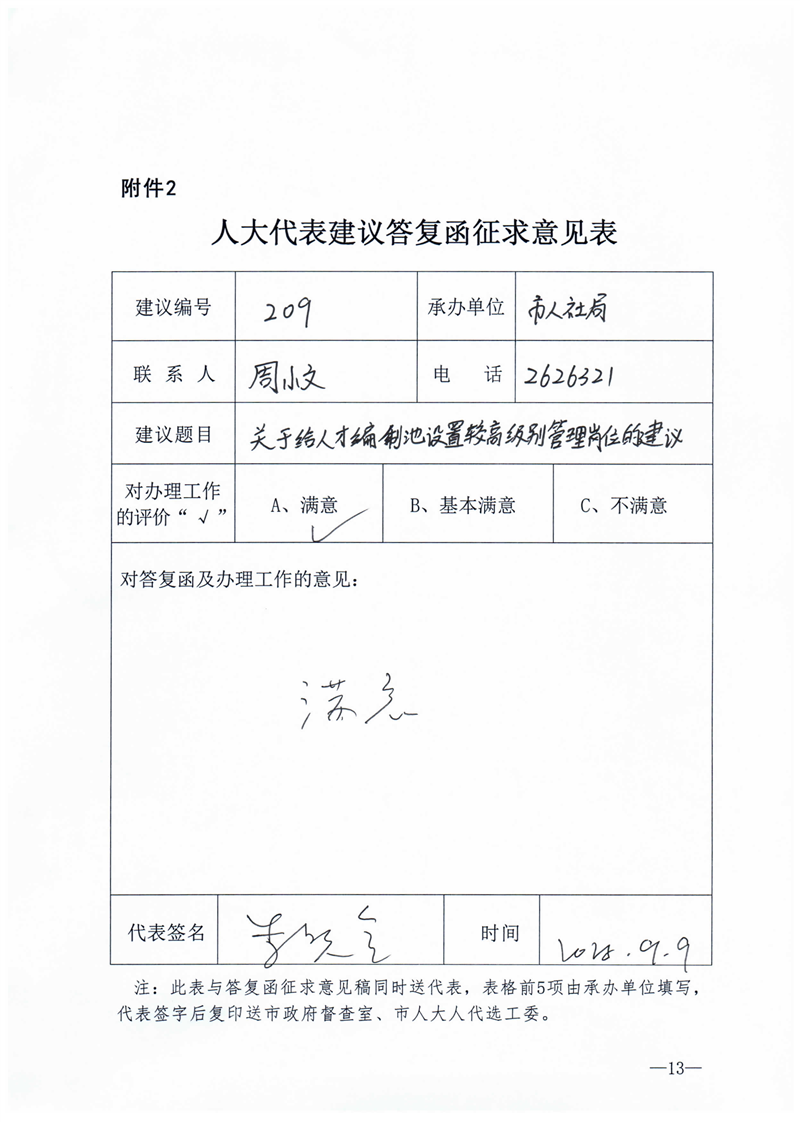 附件2
人大代表建议答复函征求意见表
建议编号 209 承办单位 市人社局
联系人 周小文 电话 2626321
建议题目 关于给人才编制池设置较高级别管理岗位的建议
对办理工作的评价“√” A、满意 √ B、基本满意 C、不满意
对答复函及办理工作的意见：
满意
代表签名 李 时间 .9.9
注：此表与答复函征求意见稿同时送代表，表格前5项由承办单位填写，
代表签字后复印送市政府督查室、市人大人代选工委。
—13—